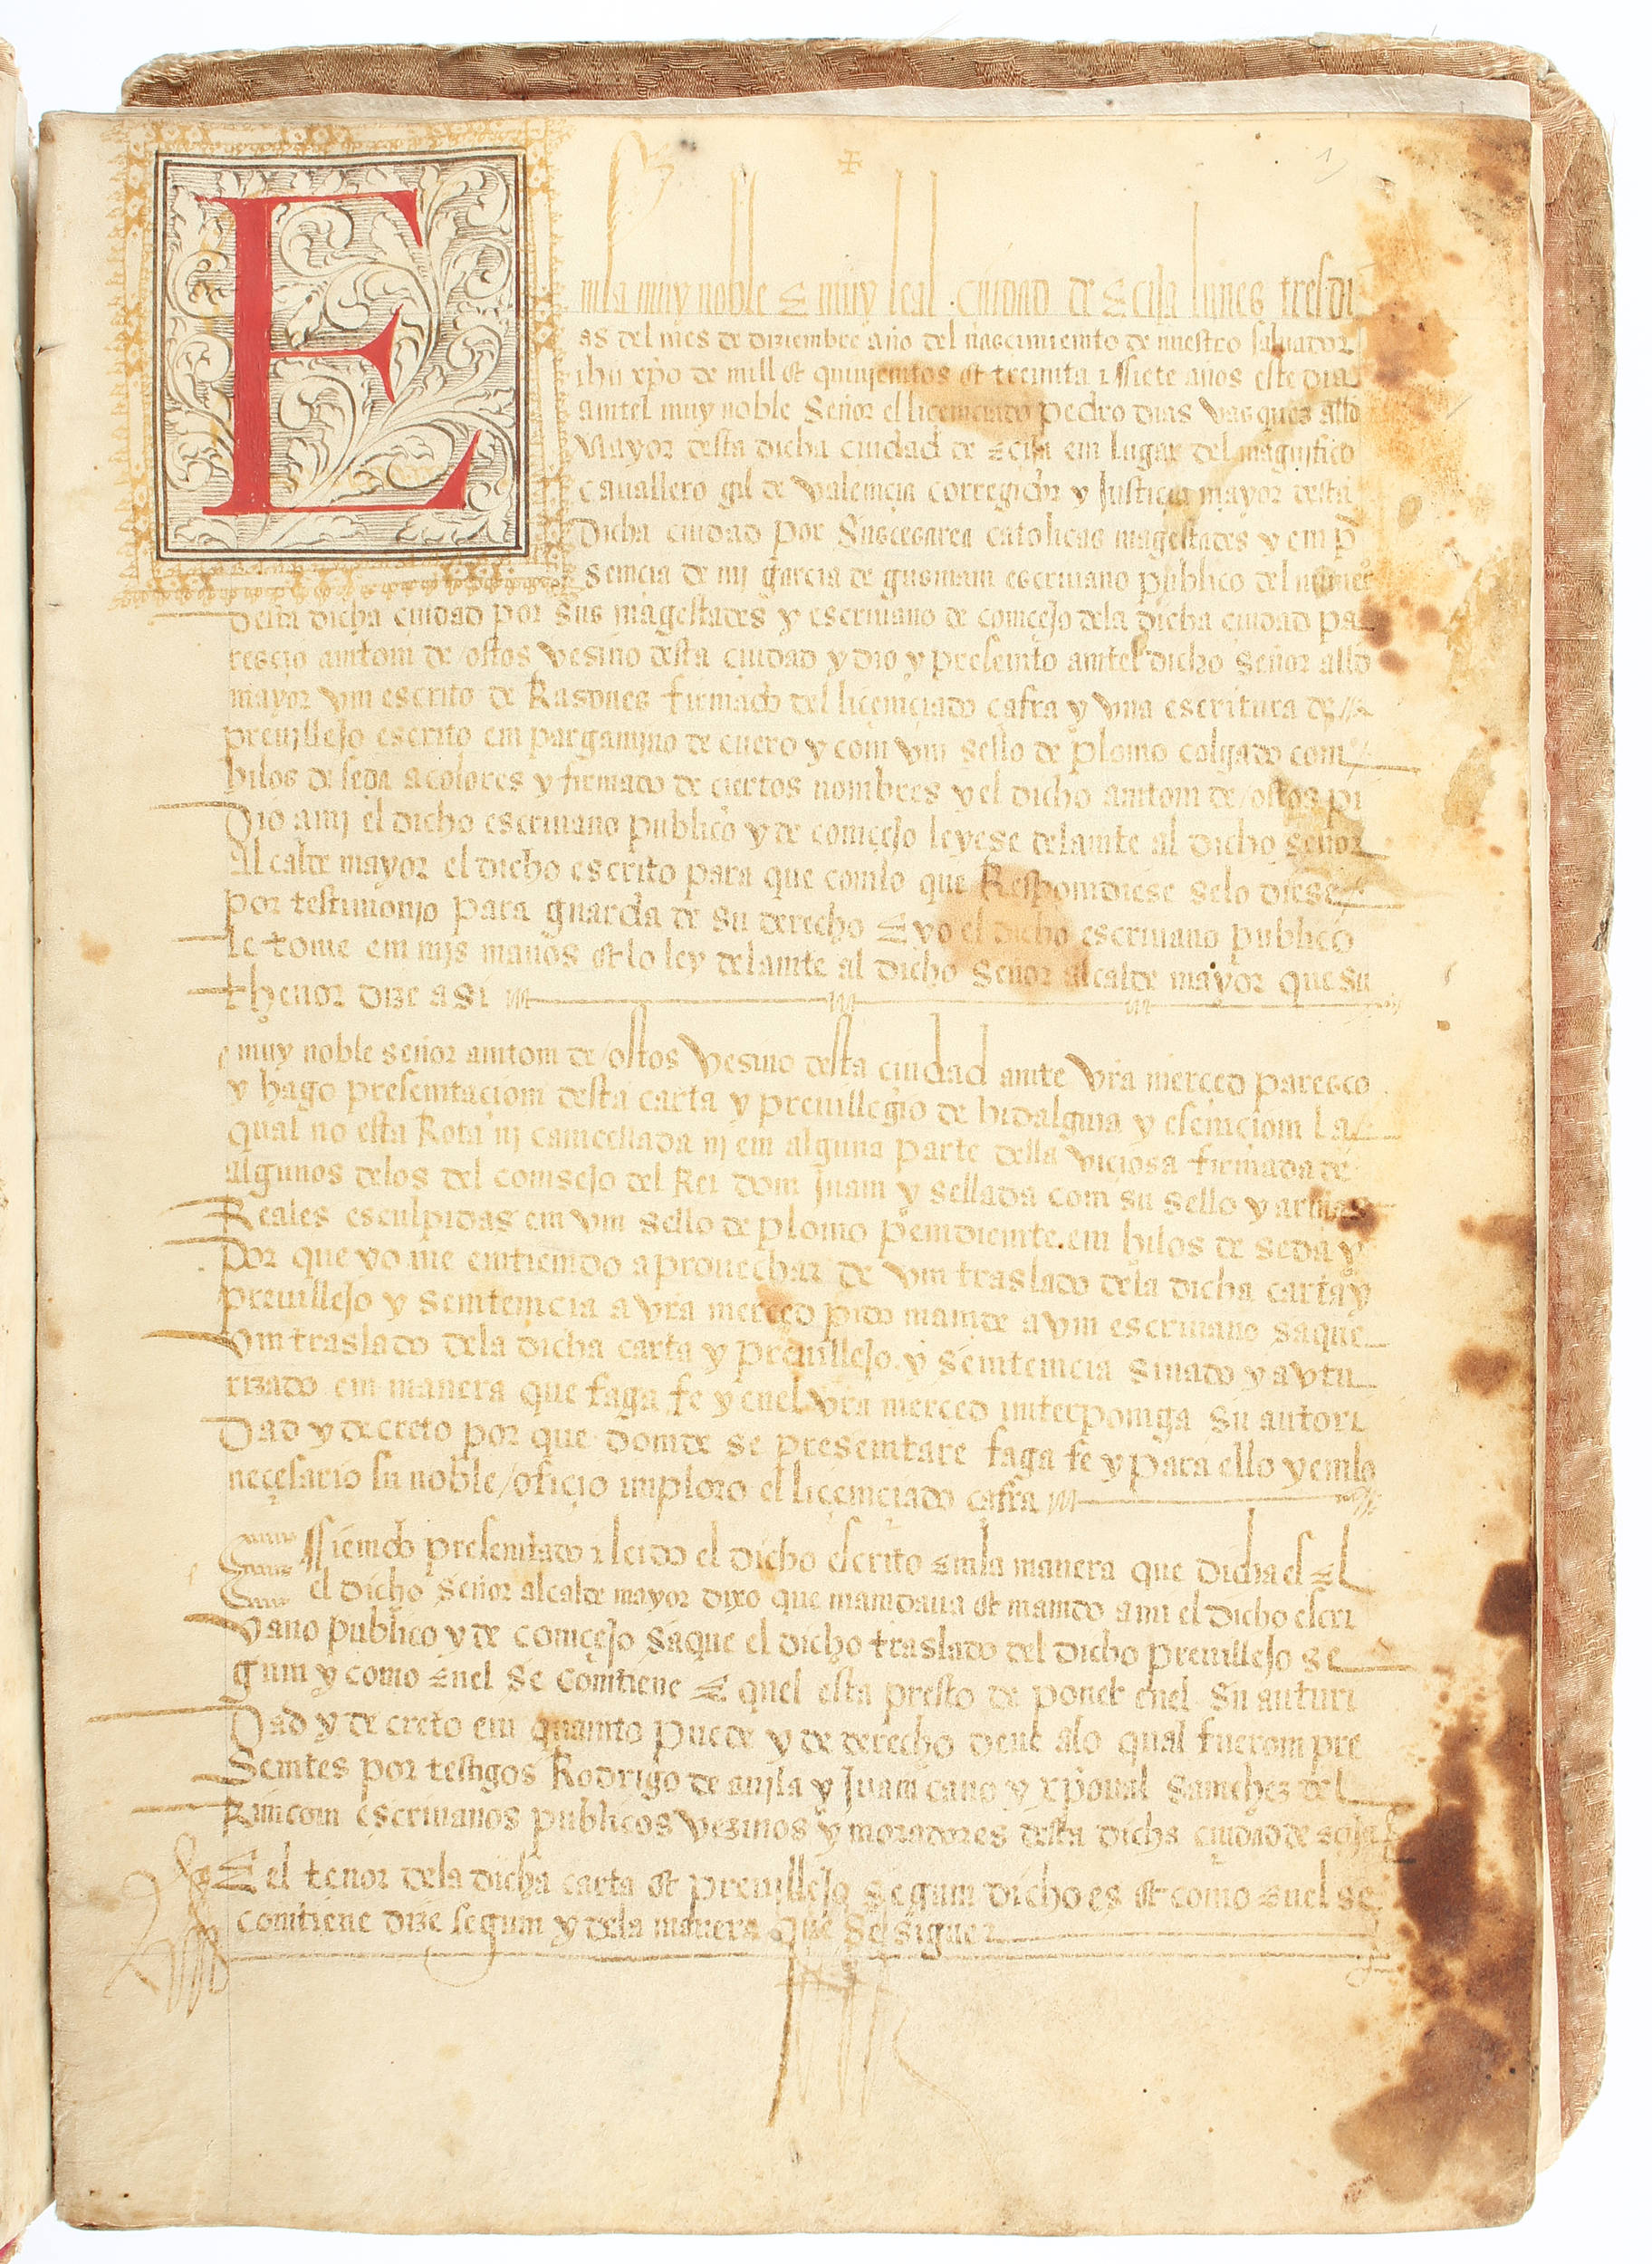 E
nla muy noble E muy leal ciudad de Ecija lunes tres di
as del mes de diziembre año del nascimiemto de nuestro saluador
ihu xpo de mill et quinjemtos et treimta i ssiete años este dia
amtel muy noble Señor el licemciado pedro dias vasques alld
Mayor desta dicha ciudad de Ecija em lugar del magnifico
cauallero gil de valemcia corregidor y Justicia mayor desta
Dicha ciudad por Sus cesarea catolicas magestades y em p
semcia de mj garcia de gusmam escriuano publico del numer
desta dicha ciudad por sus magestades y escriuano de comcejo dela dicha ciudad pa
rescio amtom de /ostos vesino desta ciudad y dio y presemto amtel dicho señor alld
mayor vm escrito de Rasones firmado del licemciado cafra y vna escritura de
preuillejo escrito em pargamino de cuero y com vm sello de plomo colgado com
hilos de seda a colores y firmado de ciertos nombres y el dicho amtom de /ostos pi
Dio a mj el dicho escriuano publico y de comcejo leyese delamte al dicho señor
Alcalde mayor el dicho escrito para que comlo que Respomdiese selo diese
por testimonjo para guarda de su derecho E yo el dicho escriuano publico
le tome em mjs manos et lo ley delamte al dicho Señor alcalde mayor que su
thenor dize asi
muy noble señor amtom de /ostos vesino desta ciudad amte vra merced paresco
y hago presemtaciom desta carta y preuillegio de hidalguia y esemciom la
qual no esta Rota nj camcellada nj em alguna parte della viciosa firmada de
algunos delos del comsejo del Rei dom Juam y sellada com su sello y armas
Reales esculpidas em vm sello de plomo pemdiemte em hilos de seda y
por que yo me emtiemdo aprouechar de vm traslado dela dicha carta y
preuillejo y semtemcia a vra merced pido mamde a vm escriuano saque
vm traslado dela dicha carta y preuillejo y semtemcia sinado y avtu
rizado em manera que faga fe y enel vra merced imterpomga su autori
Dad y decreto por que domde se presemtare faga fe y para ello y emlo
necesario su noble /oficio imploro el licemciado cafra
E assiemdo presemtado i leido el dicho escrito Emla manera que dicha es El
el dicho señor alcalde mayor dixo que mamdaua et mamdo a mi el dicho escri
vano publico y de comcejo saque el dicho traslado del dicho preuillejo se
gum y como Enel se comtiene E quel esta presto de poner enel su auturi
Dad y decreto em quamto puede y de derecho deue alo qual fuerom pre
Semtes por testigos Rodrigo de aujla y Juam cano y xpoual samchez del
Rimcom escriuanos publicos vezinos y moradores desta dicha ciudad de ecija
E el tenor dela dicha carta et preuillejo segum dicho es et como Enel se
comtiene dize segum y dela manera que se sigue